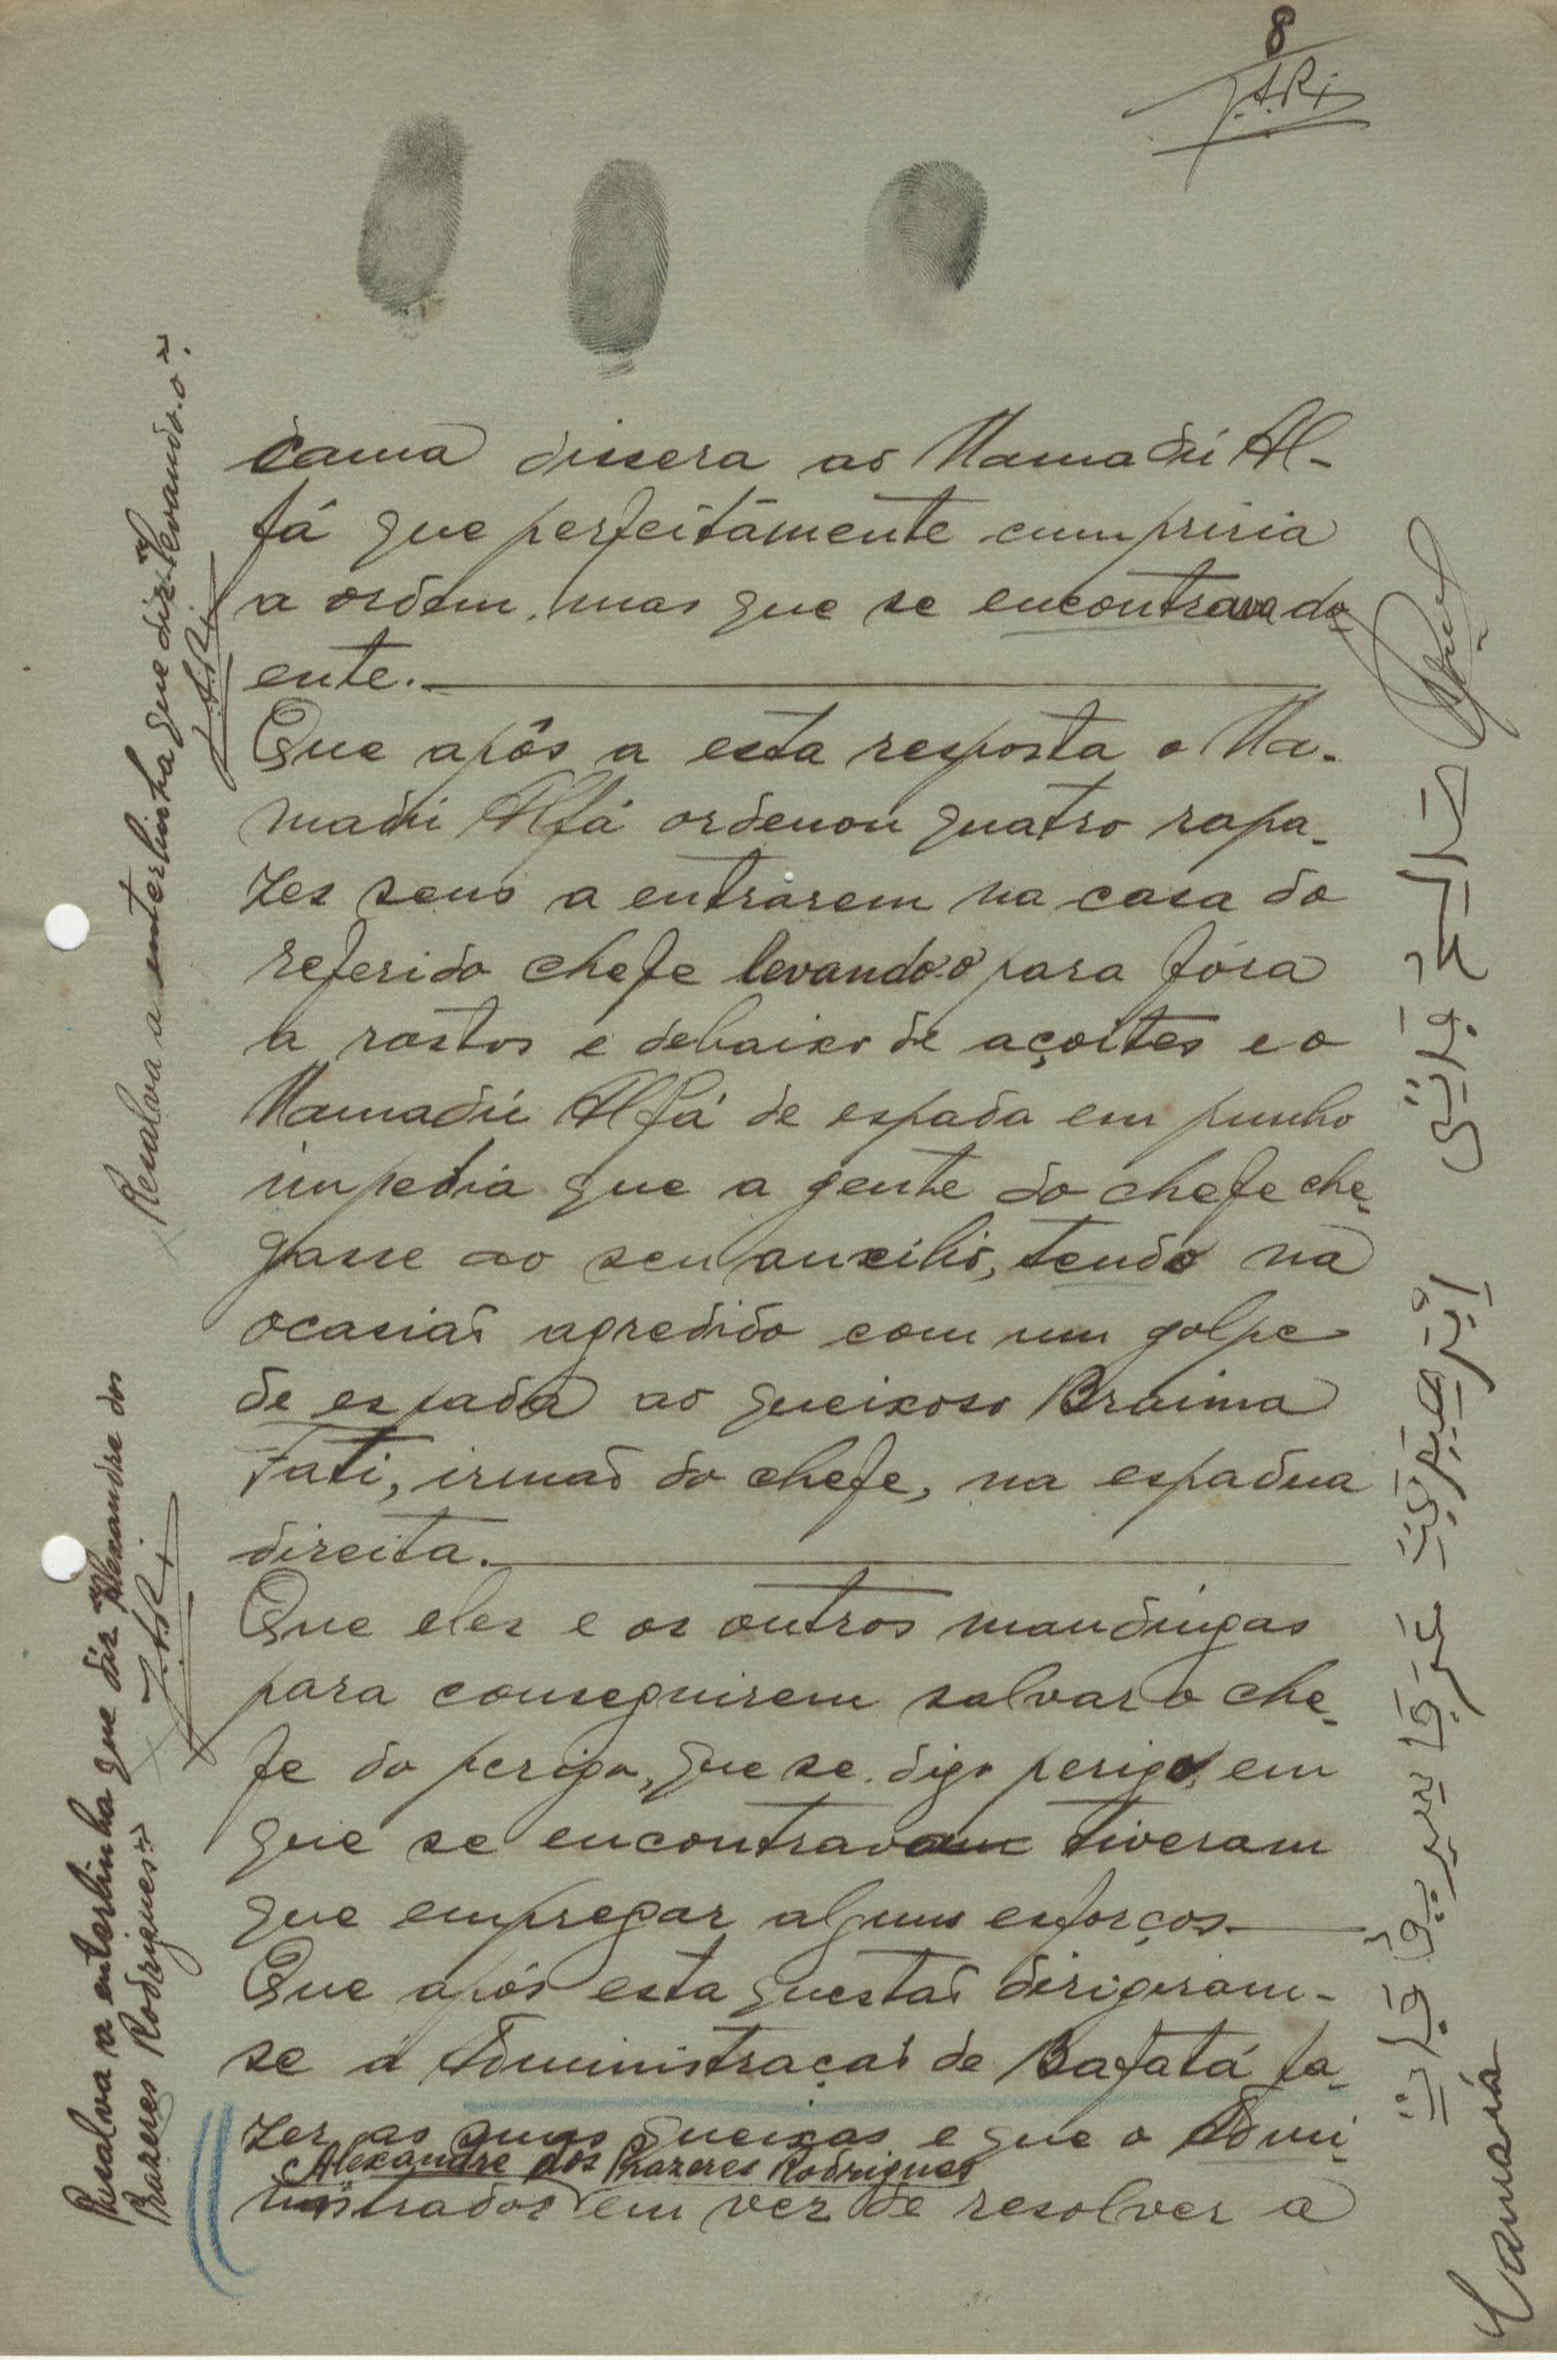 8
J.A.Ri
cama dissera ao Mamadú Al-
fá que perfeitâmente cumpriria
a ordem, mas que se encontrava do-
ente.
Que após a esta resposta o Ma-
madú Alfá ordenou quatro rapa-
zes seus a entrarem na casa do
referido chefe levando-o para fóra
a rastos e debaixo de açoites e o
Mamadú Alfá de espada em punho
impedia que a gente do chefe che-
gasse ao seu auxilio, tendo na
ocasião agredido com um golpe
de espada ao queixoso Braima
Fati, irmão do chefe, na espadua
direita.
Que eles e os outros mandingas
para conseguirem salvar o che-
fe do perigo, que se. digo perigo, em
que se encontravam tiveram
que empregar alguns esforços
Que após esta questão dirigiram-
se á Administração de Bafatá fa-
zer as suas queixas e que o Admi-
Alexandre dos Prazeres Rodrigues
nistrador em vez de resolver a
Resalva a enterlinha que diz "levando-o".
J.A.Ri
Resalva a enterlinha que diz "Alexandre dos
Prazeres Rodrigues"
J.A.Ri